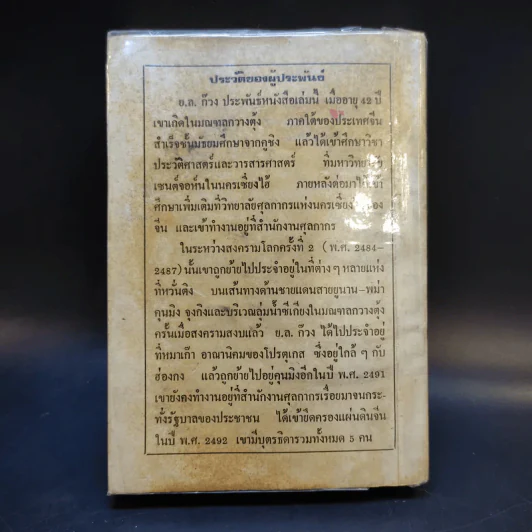 ประวัติของผู้ประพันธ์
ย.ล. ก๊วง ประพันธ์หนังสือเล่มนี้ เมื่ออายุ 42 ปี
เขาเกิดในมณฑลกวางตุ้ง ภาคใต้ของประเทศจีน
สำเร็จชั้นมัธยมศึกษาจากคูชิง แล้วได้เข้าศึกษาวิชา
ประวัติศาสตร์และวารสารศาสตร์ ที่มหาวิทยาลัย
เซนต์จอห์นในนครเซี่ยงไฮ้ ภายหลังต่อมาได้เข้า
ศึกษาเพิ่มเติมที่วิทยาลัยศุลกากรแห่งนครเซี่ยงไฮ้ของ
จีน และเข้าทำงานอยู่ที่สำนักงานศุลกากร
ในระหว่างสงครามโลกครั้งที่ 2 (พ.ศ. 2484-
2487) นั้นเขาถูกย้ายไปประจำอยู่ในที่ต่าง ๆ หลายแห่ง
ที่หวั่นติง บนเส้นทางด้านชายแดนสายยูนาน-พม่า
คุนมิง จุงกิงและบริเวณลุ่มน้ำซีเกียงในมณฑลกวางตุ้ง
ครั้นเมื่อสงครามสงบแล้ว ย.ล. ก๊วง ได้ไปประจำอยู่
ที่หมาเก๊า อาณานิคมของโปรตุเกส ซึ่งอยู่ใกล้ ๆ กับ
ฮ่องกง แล้วถูกย้ายไปอยู่คุนมิงอีกในปี พ.ศ. 2491
เขายังคงทำงานอยู่ที่สำนักงานศุลกากรเรื่อยมาจนกระ-
ทั่งรัฐบาลของประชาชน ได้เข้ายึดครองแผ่นดินจีน
ในปี พ.ศ. 2492 เขามีบุตรธิดารวมทั้งหมด 5 คน